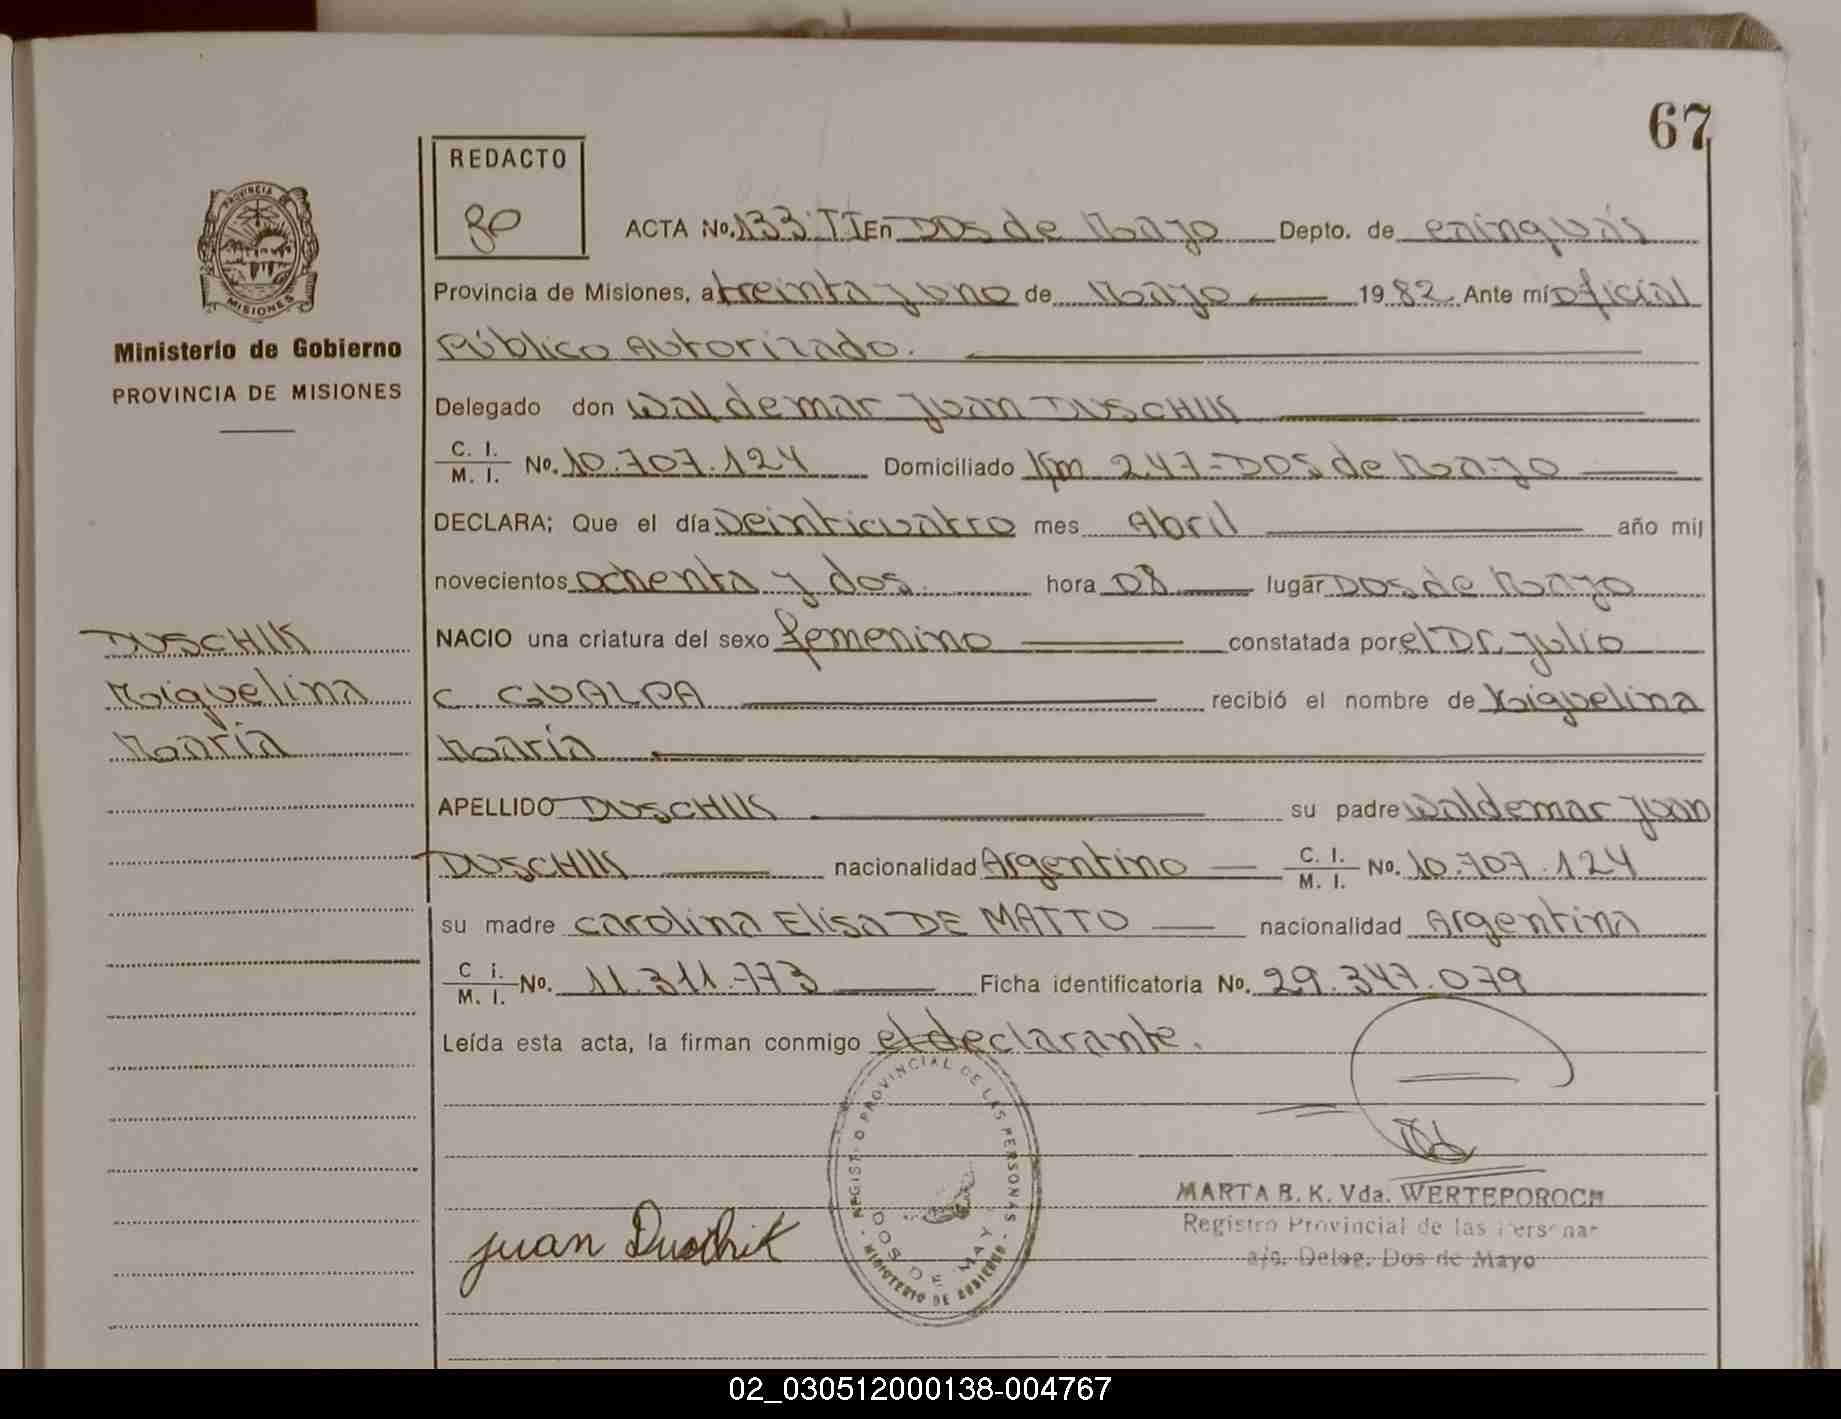 67
REDACTO
PROVINCIA
MISIONES
ACTA No. 133 TI En Dos de Mayo Depto. de
Provincia de Misiones, a treinta y uno de Mayo 1982. Ante mí oficial
Ministerio de Gobierno
Público Autorizado.
PROVINCIA DE MISIONES
Delegado don Waldemar Juan DUSCHIK
C. I.
M. I. No. 10.707.124 Domiciliado Km 247-Dos de Mayo
DECLARA; Que el día Veinticuatro mes Abril año mil
novecientos ochenta y dos. hora 08 lugar Dos de Mayo
DUSCHIK
NACIO una criatura del sexo femenino constatada por el Dr. Julio
Miguelina
C. GUALPA recibió el nombre de Miguelina
María
María
APELLIDO DUSCHIK su padre Waldemar Juan
DUSCHIK nacionalidad Argentino C. I.
M. I. No. 10.707.124
su madre Carolina Elisa DE MATTO nacionalidad Argentina
C i.
M. I. No. 11.311.773 Ficha identificatoria No. 29.347.079
Leída esta acta, la firman conmigo el declarante.
REGISTRO PROVINCIAL DE LAS PERSONAS
DOS DE MAYO
- MINISTERIO DE GOBIERNO -
MARTA B. K. Vda. WERTEPOROCH
Registro Provincial de las Personas
a/c. Deleg. Dos de Mayo
Juan Duschik
02_030512000138-004767